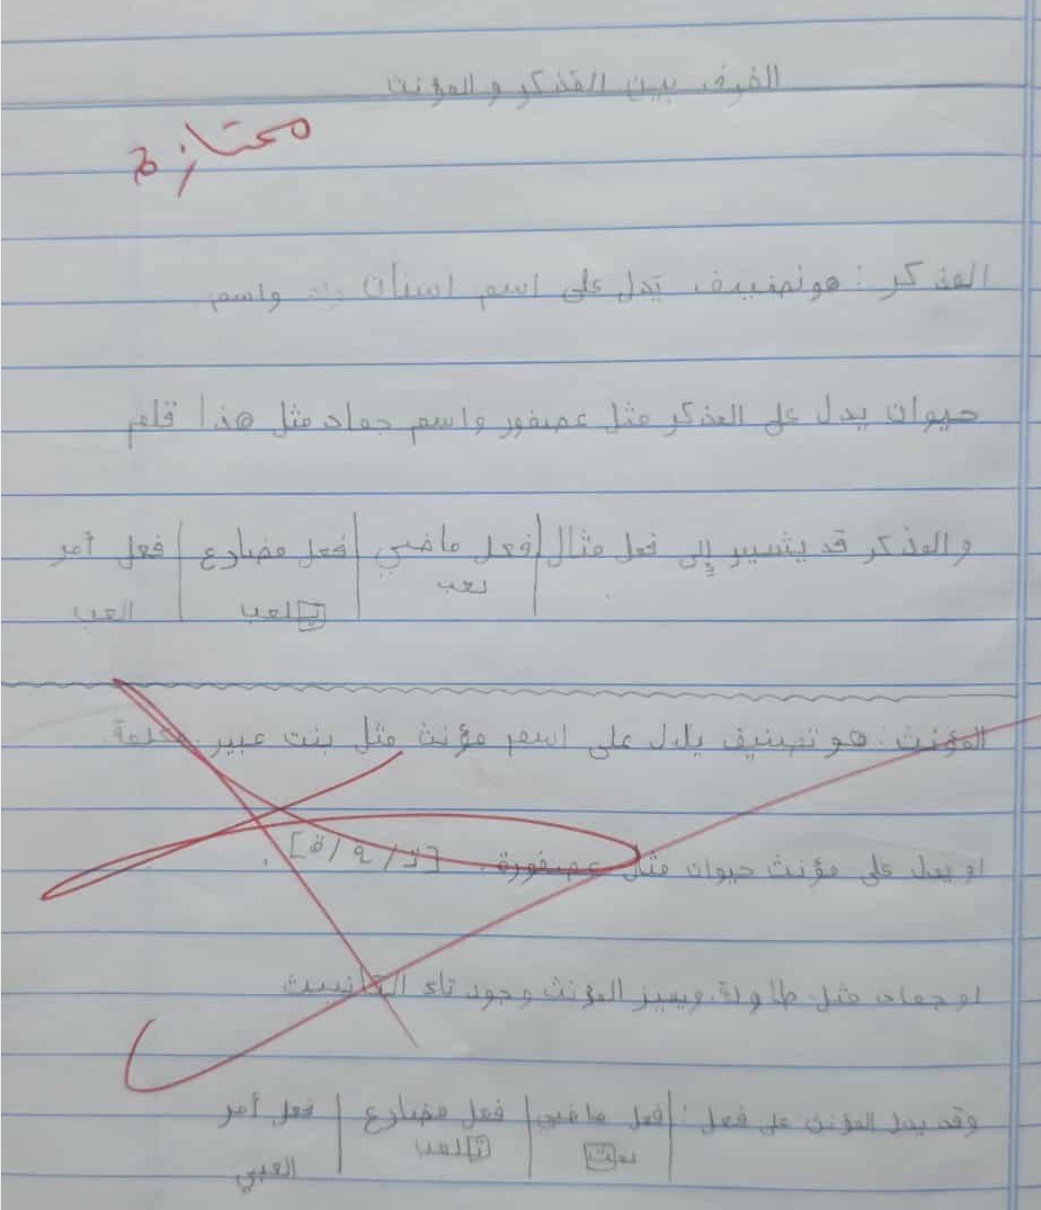 الفرق بين المذكر و المؤنث
ممتازة
المذكر : هو تصنيف يدل على اسم اسنان واسم
حيوان يدل على المذكر مثل عصفور واسم جماد مثل هذا قلم
و المذكر قد يشير إلى فعل مثال | فعل ماضي | فعل مضارع | فعل أمر
لعب يلعب العب
المؤنث : هو تصنيف يدل على اسم مؤنث مثل بنت عبير
او يدل على مؤنث حيوان مثل عصفورة.
او جماد مثل طاولة ويميز المؤنث وجود تاء التأنيث
وقد يدل المؤنث على فعل : | فعل ماضي | فعل مضارع | فعل أمر
لعبت تلعب العبي